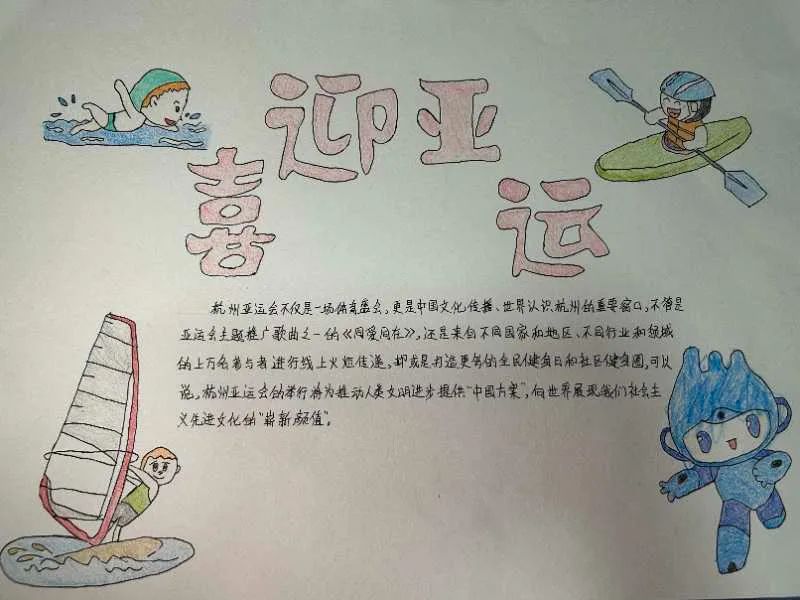 喜迎亚运
杭州亚运会不仅是一场体育盛会,更是中国文化传播、世界认识杭州的重要窗口,不管是
亚运会主题推广歌曲之一的《同爱同在》,还是来自不同国家和地区、不同行业和领域
的上万名参与者进行线上火炬传递,抑或是打造更多的全民健身日和社区健身圈,可以
说,杭州亚运会的举行将为推动人类文明进步提供“中国方案”,向世界展现我们社会主
义先进文化的“崭新颜值”。